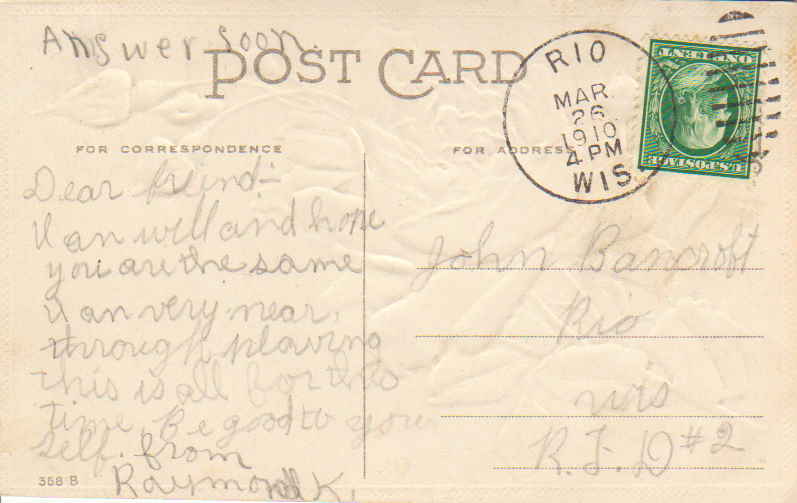 Answer soon.
POST CARD
RIO
MAR.
26
1910
4 PM
WIS.
U.S. POSTAGE
ONE CENT
FOR CORRESPONDENCE
FOR ADDRESS
Dear freind:-
I am well and hope
you are the same
I am very near,
through plaving
this is all for this
time. Be good to your
self. from
Raymond K.
John Bancroft
Rio
wis
R.F.D #2
358 B